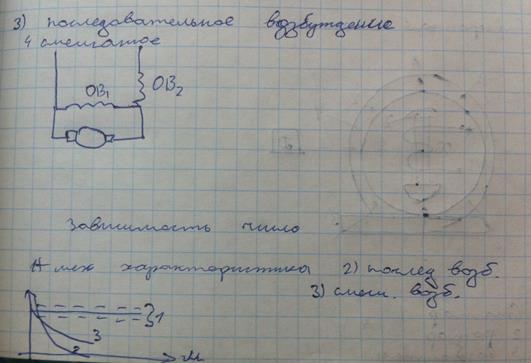 3) последовательное возбуждение
4 смешанное
ОВ1 ОВ2
Зависимость число
мех характеристики 2) послед возб.
3) смеш. возб.
1
3
2
M